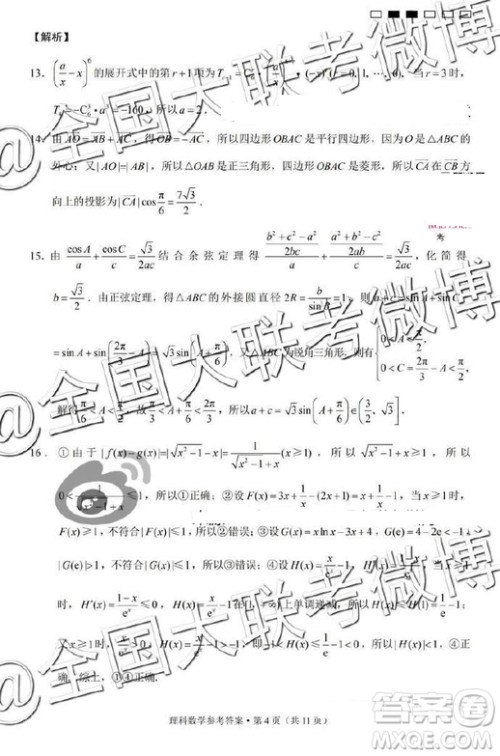 【解析】
13. (a/x - x)^6 的展开式中的第 r+1 项为 T_{r+1} = C_6^r · · (-x)^r (r=0, 1, …, 6), 当 r=3 时,
T_4 = -C_6^3 · a^3 = -160, 所以 a=2.
14. 由 AO = AB + AC, 得 OB = -AC, 所以四边形 OBAC 是平行四边形, 因为 O 是 △ABC 的
外心, 又 |AO|=|AB|, 所以 △OAB 是正三角形, 四边形 OBAC 是菱形, 所以 CA 在 CB 方
向上的投影为 |CA| cos π/6 = 7√3/2.
考
15. 由 cosA/a + cosC/c = √3/2ac 结合余弦定理得 (b²+c²-a²)/2bc / a + (a²+b²-c²)/2ab / c = √3/2ac, 化简得
b = √3/2. 由正弦定理, 得 △ABC 的外接圆直径 2R = b/sinB = 1, 则 a+c
= sin A + sin(2π/3 - A) = √3 sin(A + π/6), 又 △ABC 为锐角三角形, 则有 0<C=2π/3-A<π/2,
解得 π/6<A<π/2, 所以 a+c = √3 sin(A+π/6) ∈ (3/2, √3].
16. ①由于 |f(x)-g(x)|=|√(x²-1)-x|=1/(√(x²-1)+x), 所以 √(x²-1)+x≥1, 所以
0<1/(√(x²-1)+x)≤1, 所以①正确; ②设 F(x)=3x+1/x-(2x+1)=x+1/x-1, 当 x≥1 时,
F(x)≥1, 不符合 |F(x)|≤1, 所以②错误; ③设 G(x)=xlnx-3x+4,
|G(e)|>1, 不符合 |G(x)|≤1, 所以③错误; ④设 H(x)=
时, H'(x)=(1-x)/e^x≤0, H(x)= 上单调递减, 所以 H(x)≤H(1)=1/e-1<0;
又 x≥1 时, >0, H(x)= -1>-1, 即 -1<H(x)≤1/e-1<0, ④正
确. 综上, ①④正确.
理科数学参考答案·第 4 页(共 11 页)
@全国大联考微博
@全国大联考微博
答案圈
MXQE.COM